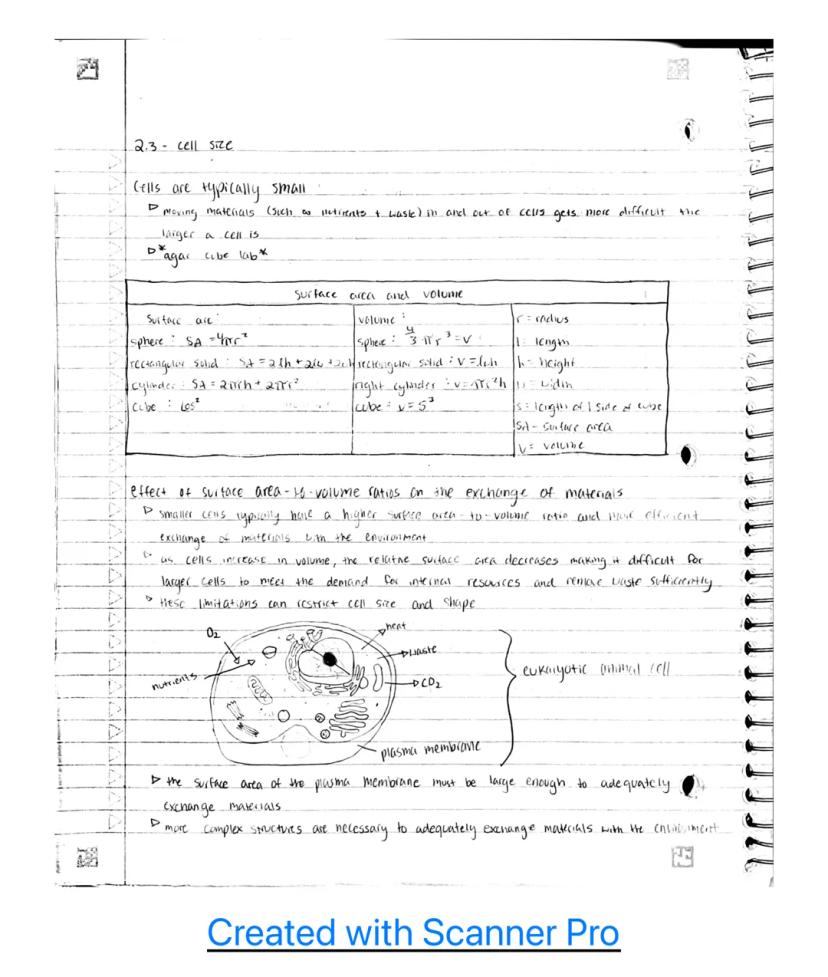 2.3 - cell size
Cells are typically small
▷ moving materials (such as nutrients + waste) in and out of cells gets more difficult the
larger a cell is
▷ *agar cube lab*
Surface area and volume
Surface are:
sphere: SA = 4πr²
rectangular solid: SA = 2lh + 2lw + 2wh
cylinder: SA = 2πrh + 2πr²
cube: 6s²
volume:
sphere: 4/3 πr³ = V
rectangular solid: V = lwh
right cylinder: V = πr²h
cube: V = s³
r = radius
l = length
h = height
w = width
s = length of 1 side of cube
SA - surface area
V = volume
effect of surface area-to-volume ratios on the exchange of materials
▷ smaller cells typically have a higher surface area-to-volume ratio and more efficient
exchange of materials with the environment
▷ as cells increase in volume, the relative surface area decreases making it difficult for
larger cells to meet the demand for internal resources and remove waste sufficiently
▷ these limitations can restrict cell size and shape
O₂
nutrients
heat
waste
CO₂
plasma membrane
eukaryotic animal cell
▷ the surface area of the plasma membrane must be large enough to adequately
exchange materials
▷ more complex structures are necessary to adequately exchange materials with the environment
Created with Scanner Pro